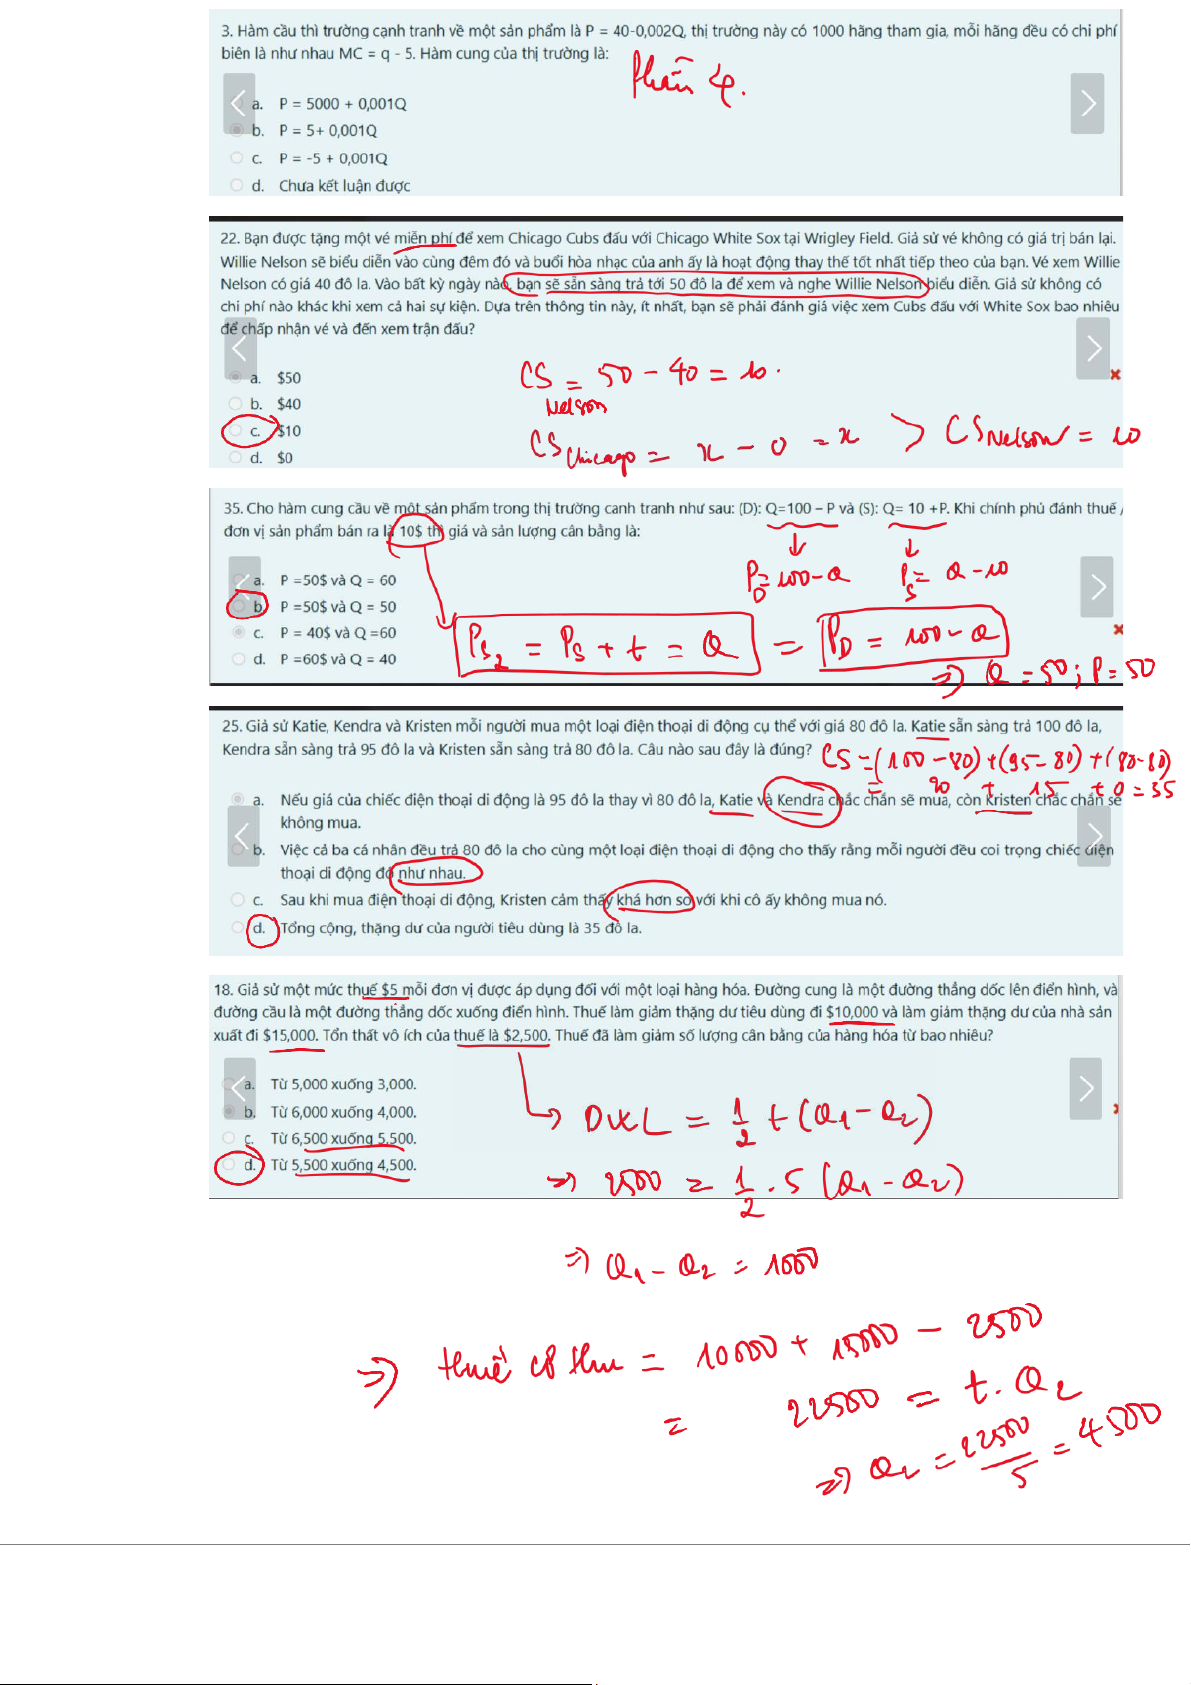 3. Hàm cầu thì trường cạnh tranh về một sản phẩm là P = 40-0,002Q, thị trường này có 1000 hãng tham gia, mỗi hãng đều có chi phí
biên là như nhau MC = q - 5. Hàm cung của thị trường là:
Phần 4.
a. P = 5000 + 0,001Q
b. P = 5+ 0,001Q
c. P = -5 + 0,001Q
d. Chưa kết luận được
22. Bạn được tặng một vé miễn phí để xem Chicago Cubs đấu với Chicago White Sox tại Wrigley Field. Giả sử vé không có giá trị bán lại.
Willie Nelson sẽ biểu diễn vào cùng đêm đó và buổi hòa nhạc của anh ấy là hoạt động thay thế tốt nhất tiếp theo của bạn. Vé xem Willie
Nelson có giá 40 đô la. Vào bất kỳ ngày nào, bạn sẽ sẵn sàng trả tới 50 đô la để xem và nghe Willie Nelson biểu diễn. Giả sử không có
chi phí nào khác khi xem cả hai sự kiện. Dựa trên thông tin này, ít nhất, bạn sẽ phải đánh giá việc xem Cubs đấu với White Sox bao nhiêu
để chấp nhận vé và đến xem trận đấu?
a. $50
b. $40
c. $10
d. $0
CS Nelson = 50 - 40 = 10.
CS Chicago = x - 0 = x > CS Nelson = 10
35. Cho hàm cung cầu về một sản phẩm trong thị trường canh tranh như sau: (D): Q=100 – P và (S): Q= 10 +P. Khi chính phủ đánh thuế /
đơn vị sản phẩm bán ra là 10$ thì giá và sản lượng cân bằng là:
P D = 100-Q P S = Q-10
a. P =50$ và Q = 60
b. P =50$ và Q = 50
c. P = 40$ và Q =60
d. P =60$ và Q = 40
PS2 = PS + t = Q = PD = 100-Q
=> Q = 50 ; P = 50
25. Giả sử Katie, Kendra và Kristen mỗi người mua một loại điện thoại di động cụ thể với giá 80 đô la. Katie sẵn sàng trả 100 đô la,
Kendra sẵn sàng trả 95 đô la và Kristen sẵn sàng trả 80 đô la. Câu nào sau đây là đúng?
CS = (100-80)+(95-80)+(80-80)
= 20 + 15 + 0 = 35
a. Nếu giá của chiếc điện thoại di động là 95 đô la thay vì 80 đô la, Katie và Kendra chắc chắn sẽ mua, còn Kristen chắc chắn sẽ
không mua.
b. Việc cả ba cá nhân đều trả 80 đô la cho cùng một loại điện thoại di động cho thấy rằng mỗi người đều coi trọng chiếc điện
thoại di động đó như nhau.
c. Sau khi mua điện thoại di động, Kristen cảm thấy khá hơn so với khi cô ấy không mua nó.
d. Tổng cộng, thặng dư của người tiêu dùng là 35 đô la.
18. Giả sử một mức thuế $5 mỗi đơn vị được áp dụng đối với một loại hàng hóa. Đường cung là một đường thẳng dốc lên điển hình, và
đường cầu là một đường thẳng dốc xuống điển hình. Thuế làm giảm thặng dư tiêu dùng đi $10,000 và làm giảm thặng dư của nhà sản
xuất đi $15,000. Tổn thất vô ích của thuế là $2,500. Thuế đã làm giảm số lượng cân bằng của hàng hóa từ bao nhiêu?
a. Từ 5,000 xuống 3,000.
b. Từ 6,000 xuống 4,000.
c. Từ 6,500 xuống 5,500.
d. Từ 5,500 xuống 4,500.
DWL = 1/2 t (Q1 - Q2)
=> 2500 = 1/2 . 5 (Q1 - Q2)
=> Q1 - Q2 = 1000
=> thuế cp thu = 10000 + 15000 - 2500
= 22500 = t. Q2
=> Q2 = 22500/5 = 4500